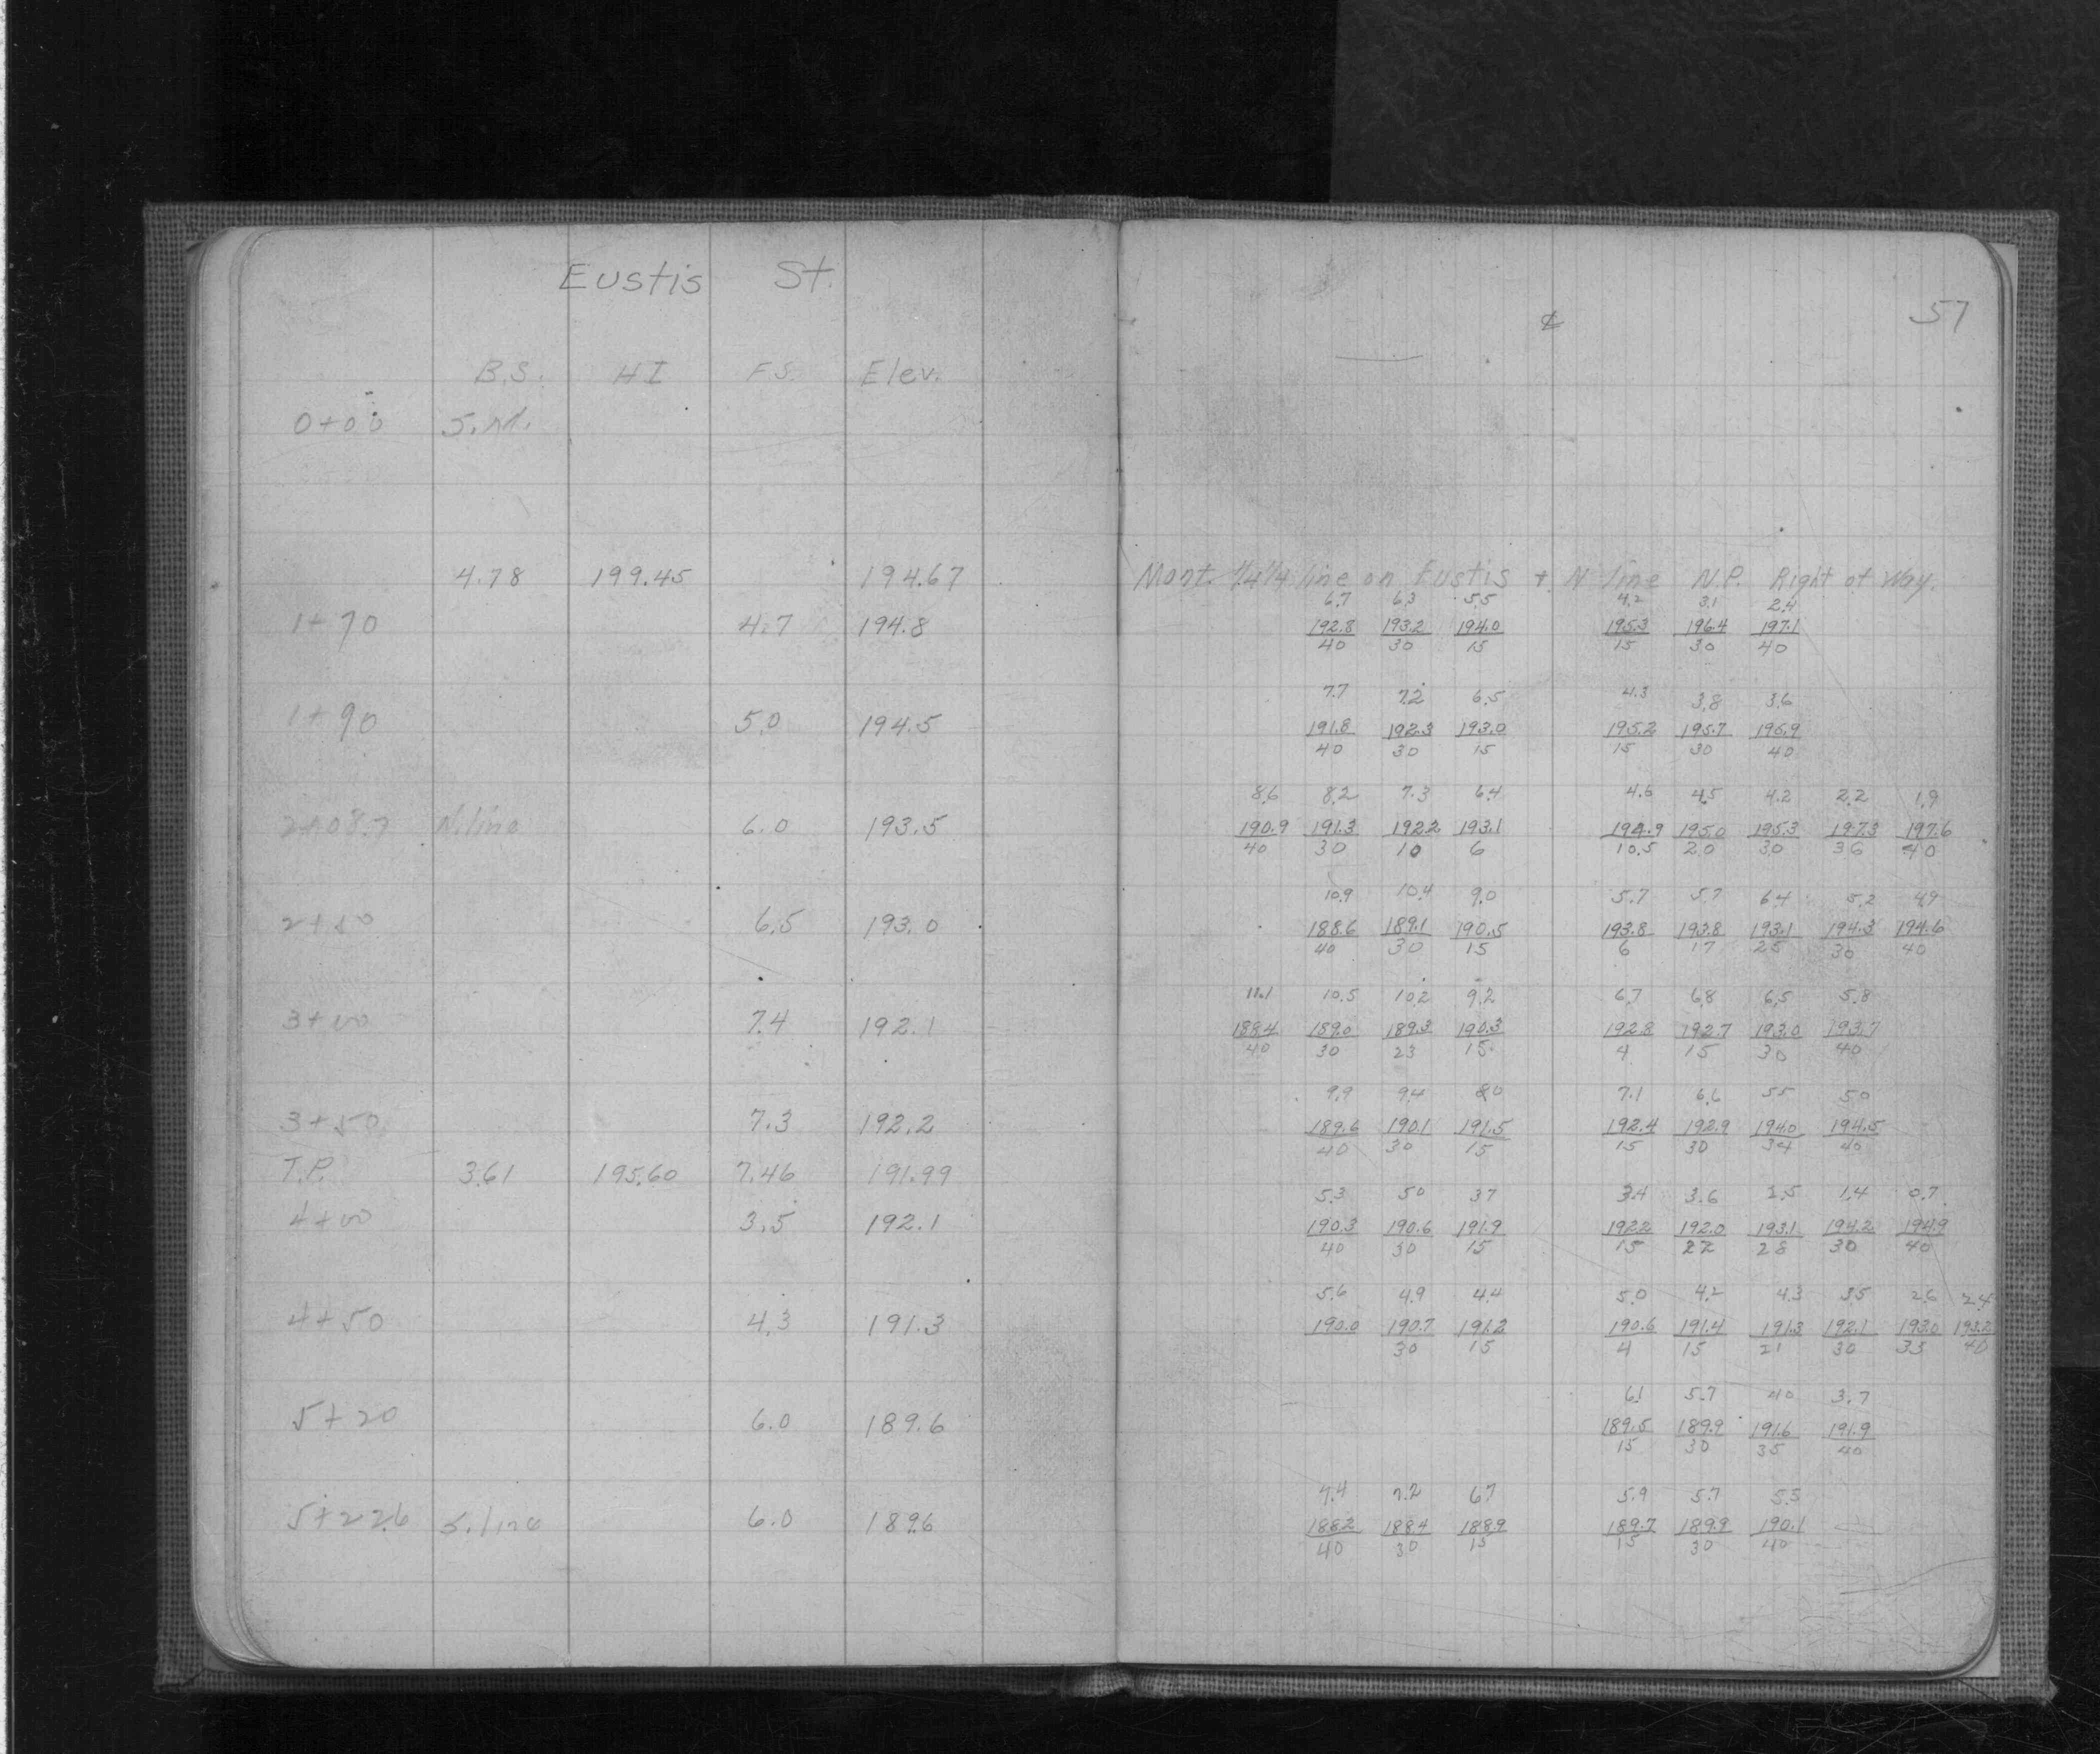 Eustis St.
57
℄
B.S. HI F.S. Elev.
0+00
4.78 199.45 194.67 Mont. 1/4 1/4 line on Eustis + N line N.P. Right of Way.
6.7 6.3 5.5 4.2 3.1 2.4
1+70 4.7 194.8 192.8 193.2 194.0 195.3 196.4 197.1
40 30 15 15 30 40
7.7 7.2 6.5 4.3 3.8 3.6
1+90 5.0 194.5 191.8 192.3 193.0 195.2 195.7 195.9
40 30 15 15 30 40
8.6 8.2 7.3 6.4 4.6 4.5 4.2 2.2 1.9
2+08.7 N. line 6.0 193.5 190.9 191.3 192.2 193.1 194.9 195.0 195.3 197.3 197.6
40 30 10 6 10.5 20 30 36 40
10.9 10.4 9.0 5.7 5.7 6.4 5.2 4.9
2+50 6.5 193.0 188.6 189.1 190.5 193.8 193.8 193.1 194.3 194.6
40 30 15 6 17 25 30 40
11.1 10.5 10.2 9.2 6.7 6.8 6.5 5.8
3+00 7.4 192.1 188.4 189.0 189.3 190.3 192.8 192.7 193.0 193.7
40 30 23 15 4 15 30 40
9.9 9.4 8.0 7.1 6.6 5.5 5.0
3+50 7.3 192.2 189.6 190.1 191.5 192.4 192.9 194.0 194.5
40 30 15 15 30 34 40
T.P. 3.61 195.60 7.46 191.99
5.3 5.0 3.7 3.4 3.6 2.5 1.4 0.7
4+00 3.5 192.1 190.3 190.6 191.9 192.2 192.0 193.1 194.2 194.9
40 30 15 15 22 28 30 40
5.6 4.9 4.4 5.0 4.2 4.3 3.5 2.6 2.4
4+50 4.3 191.3 190.0 190.7 191.2 190.6 191.4 191.3 192.1 193.0 193.2
30 15 4 15 21 30 35 40
6.1 5.7 4.0 3.7
5+20 6.0 189.6 189.5 189.9 191.6 191.9
15 30 35 40
7.4 7.2 6.7 5.9 5.7 5.5
5+22.6 S. line 6.0 189.6 188.2 188.4 188.9 189.7 189.9 190.1
40 30 15 15 30 40